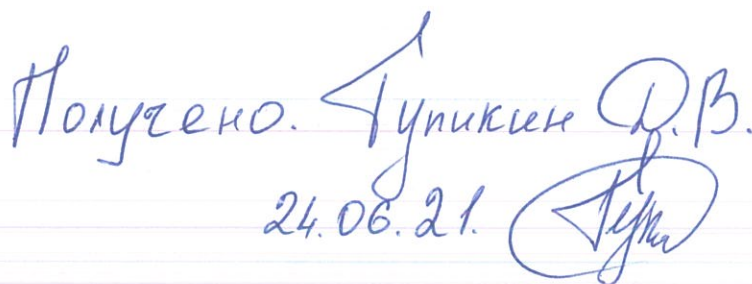 Получено. Тупикин Д.В.
24.06.21.